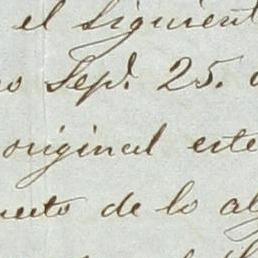 el siguient
o Sept. 25.
original este
uesto de lo al